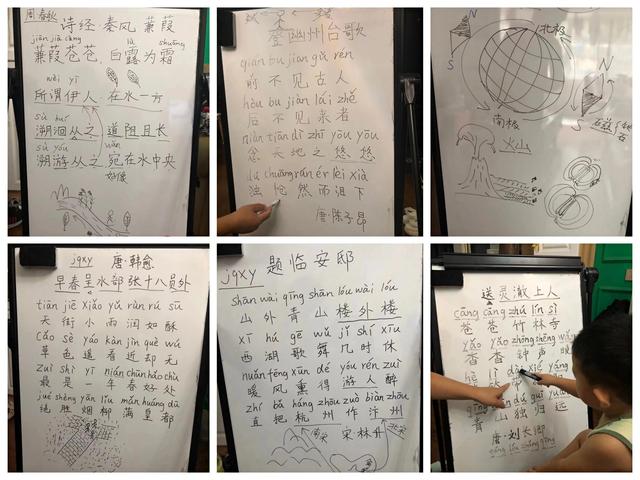 周 春秋
诗经·秦风 蒹葭
jiān jiā cāng
lù shuāng
蒹葭苍苍,白露为霜
wèi yī
所谓伊人,在水一方
sù huí
溯洄从之 道阻且长
sù yóu wǎn
溯游从之 宛在水中央
好像
登幽州台歌
qián bu jiàn gǔ rén
前不见古人
hòu bu jiàn lái zhě
后不见来者
niàn tiān dì zhī yōu yōu
念天地之悠悠
dú chuàng rán ér lèi xià
独怆然而泪下
唐·陈子昂
北极
N
S
N
S
南极
火山
jqxy 唐·韩愈
早春呈水部张十八员外
tiān jiē xiǎo yǔ rùn rú sū
天街小雨润如酥
cǎo sè yáo kàn jìn què wú
草色遥看近却无
zuì shì yì nián chūn hǎo chù
最是一年春好处
jué shèng yān liǔ mǎn huáng dū
绝胜烟柳满皇都
jqxy 题临安邸
shān wài qīng shān lóu wài lóu
山外青山楼外楼
xī hú gē wǔ jǐ shí xiū
西湖歌舞几时休
nuǎn fēng xūn dé yóu rén zuì
暖风熏得游人醉
zhí bǎ háng zhōu zuò biàn zhōu
直把杭州作汴州
南宋 宋·林升 北宋
送灵澈上人
cāng cāng zhú lín sì
苍苍竹林寺
yǎo yǎo zhōng shēng wǎn
杳杳钟声晚
hè lì dài xié yáng
qīng shān dú guī yuǎn
青山独归远
唐·刘长卿